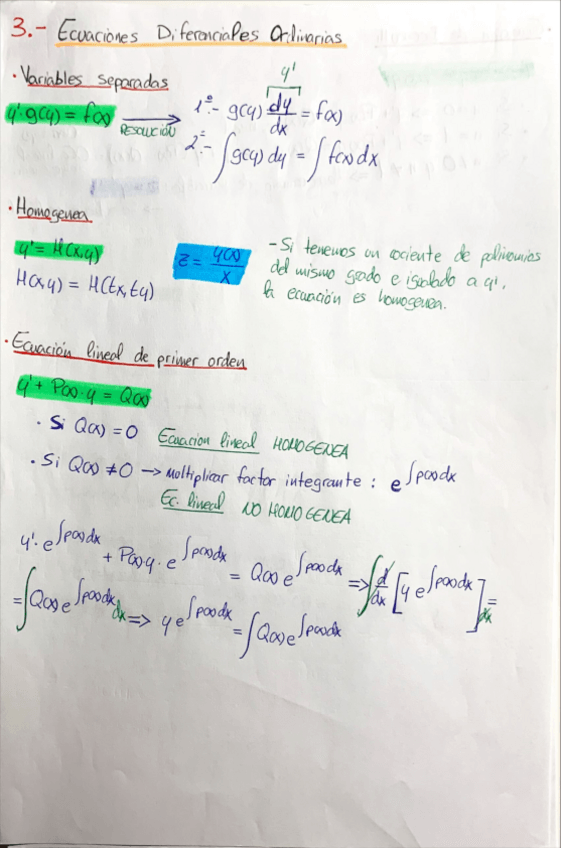 3.- Ecuaciones Diferenciales Ordinarias
· Variables separadas
y'·g(y) = f(x) → RESOLUCIÓN 1º.- g(y) dy/dx = f(x)
y'
2º.- ∫g(y) dy = ∫f(x) dx
· Homogenea
y' = H(x,y)
H(x,y) = H(tx,ty)
z = y(x)/x
- Si tenemos un cociente de polinomios
del mismo grado e igualado a y',
la ecuación es homogenea.
· Ecuación lineal de primer orden
y' + P(x)·y = Q(x)
· Si Q(x) = 0 Ecuacion lineal HOMOGENEA
· Si Q(x) ≠ 0 → Multiplicar factor integrante : e^∫p(x)dx
Ec. lineal NO HOMOGENEA
y'·e^∫p(x)dx + P(x)y·e^∫p(x)dx = Q(x)e^∫p(x)dx => ∫d/dx [y e^∫p(x)dx]dx =
= ∫Q(x)e^∫p(x)dx dx => y e^∫p(x)dx = ∫Q(x)e^∫p(x)dx